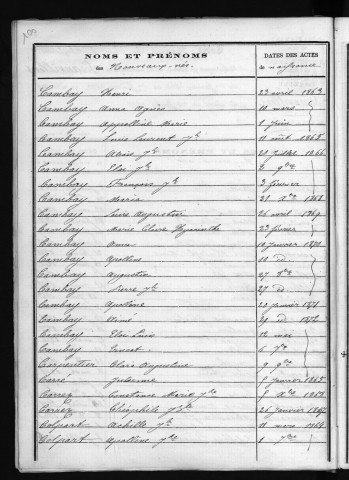 100
NOMS ET PRÉNOMS
des Nouveaux-nés
DATES DES ACTES
de naissance
Cambay Henri 23 avril 1863
Cambay Anna Agnès 10 mars
Cambay Appolline Marie 1 juin
Cambay Louis Laurent Jh 11 août 1865
Cambay Alexis Jh 21 juillet 1866
Cambay Jh 2 9bre
Cambay François Jh 2 février
Cambay Maria 21 Xbre 1868
Cambay Augustin 26 avril 1869
Cambay Marie Hyacinthe 23 février
Cambay Anna 10 janvier 1870
Cambay 10 do
Cambay Augustin 27
Cambay Pierre Jh 27 do
Cambay Apolline 20 janvier 1871
Cambay Aimé 29 do 1872
Cambay Eloi Louis 12 mai
Cambay Ernest 6 7bre
Carpentier Clara Augustine 9 9bre
Carré 8 janvier 1865
Carrez Constance Marie 8 Xbre 1863
Carrez Théophile 26 janvier
Colpart Achille Jh 11 mars
Colpart Apolline Jh 1 7bre